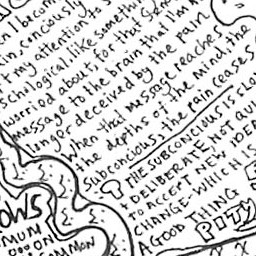 n I becom
im consciously
t my attention to s
schological, like someth
worried about for that
message to the brain that I'm
longer deceived by the pain.
when that message reaches
the depths of the mind, the
subconscious, the pain ceases
THE SUBCONSCIOUS IS
DELIBERATE, NOT
TO ACCEPT NEW IDEA
CHANGE - WHICH IS
A GOOD THING
PITY
OWS
MUN
ON
COMMON